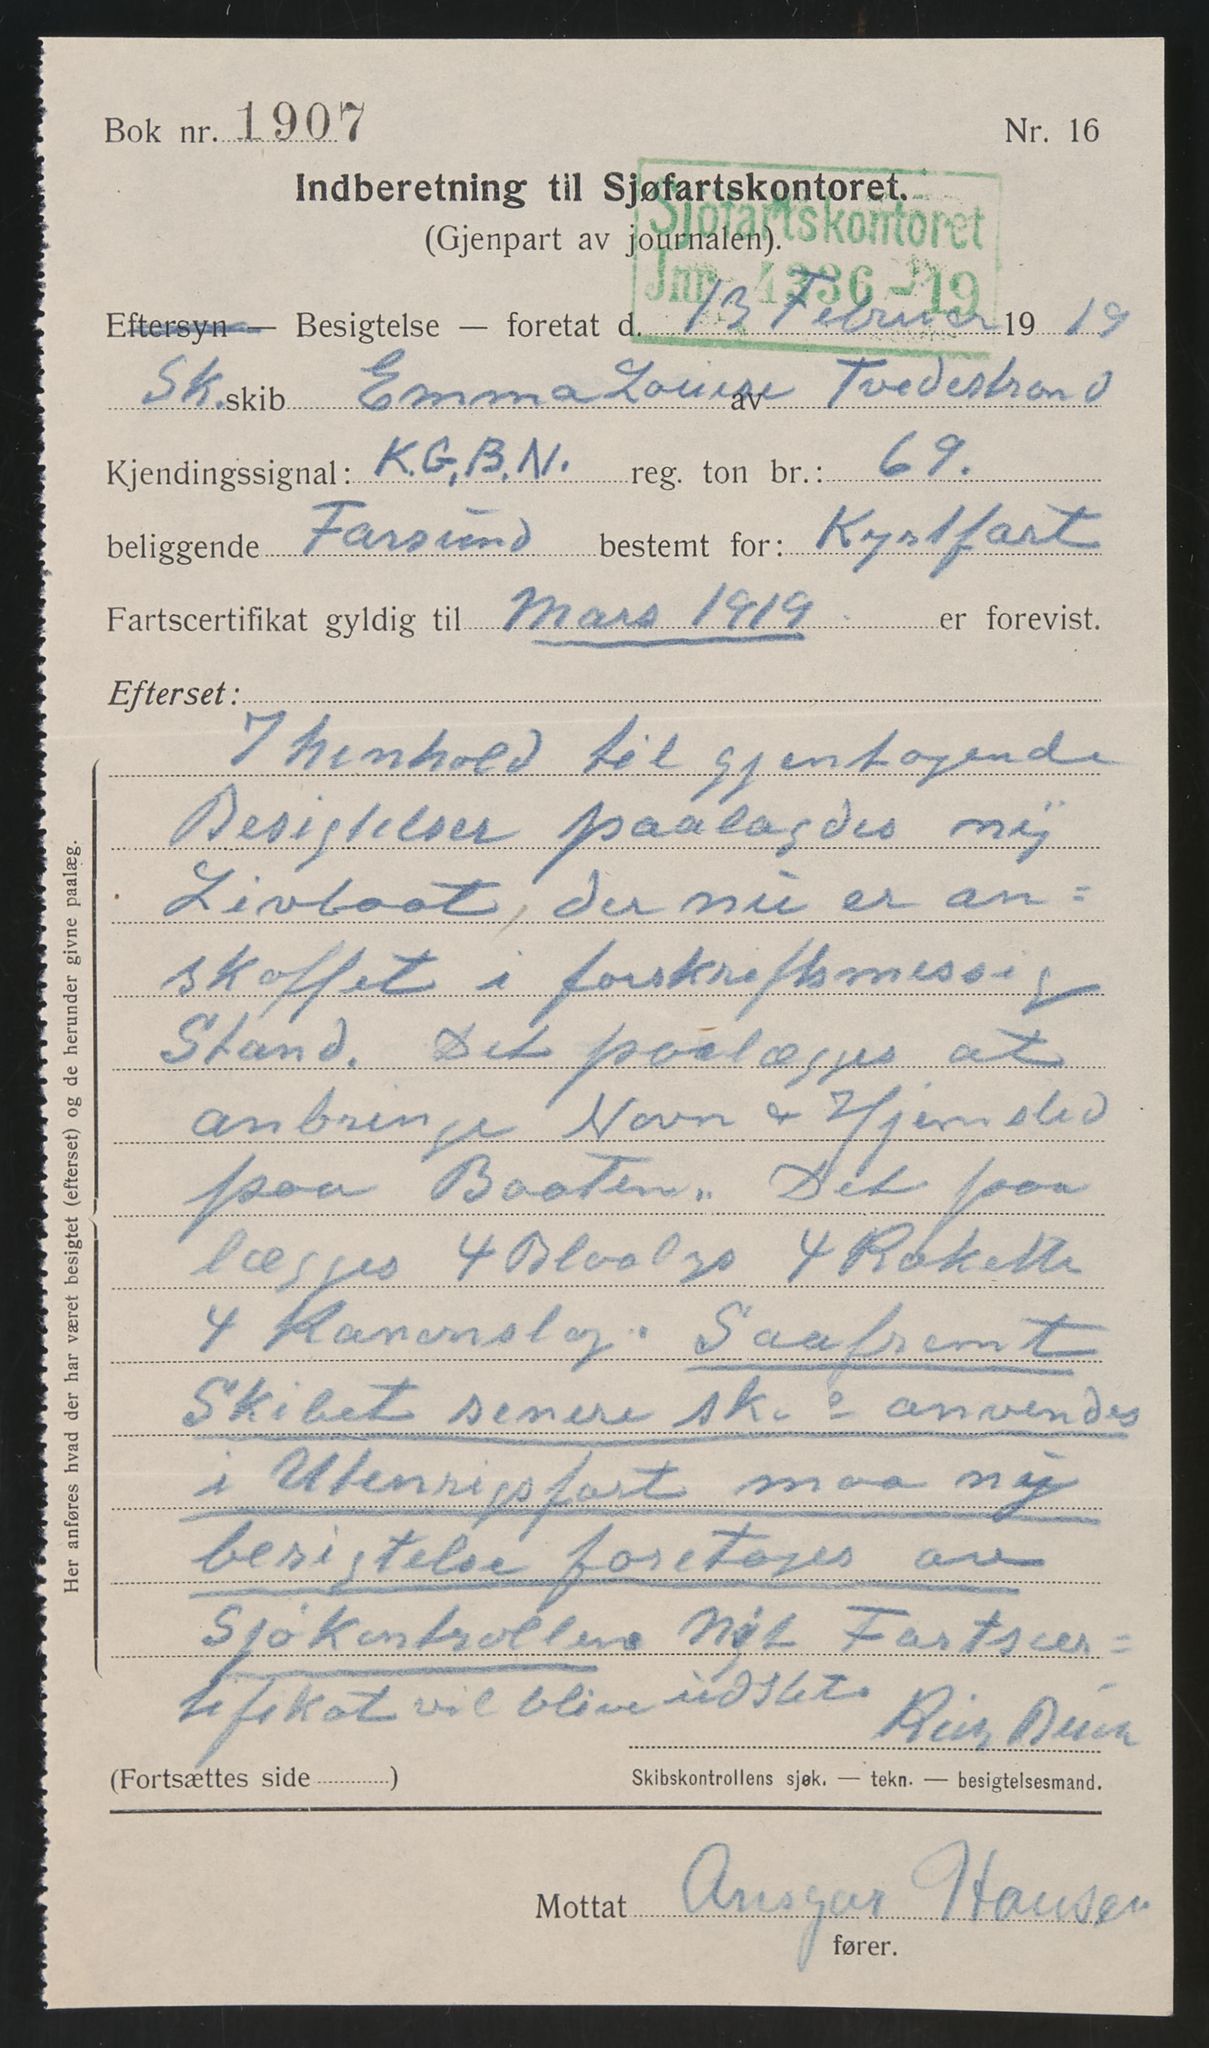 Bok nr. 1907 Nr. 16
Indberetning til Sjøfartskontoret.
(Gjenpart av journalen).
Sjøfartskontoret
Jnr. 4336-19
Eftersyn — Besigtelse — foretat d. 13 Februar 1919
Sk. skib Emma Louise av Tvedestrand
Kjendingssignal: K.G.B.N. reg. ton br.: 69.
beliggende Farsund bestemt for: Kystfart
Fartscertifikat gyldig til Mars 1919 er forevist.
Efterset:
I henhold til gjentagende
Besigtelser paalagdes ny
Livbaat, der nu er an=
skaffet i forskriftsmessig
Stand. Det paalægges at
anbringe Navn & Hjemsted
paa Baaten. Det paa
lægges 4 Blaalys 4 Raketter
4 Kanonslag. Saafremt
Skibet senere anvendes
i Utenrigsfart maa ny
besigtelse foretages av
Sjökontrollen Nyt Fartscer=
tifikat vil blive udstet.
(Fortsættes side )
Skibskontrollens sjøk. — tekn. — besigtelsesmand.
Mottat Ansgar Hansen
fører.
Her anføres hvad der har været besigtet (efterset) og de herunder givne paalæg.